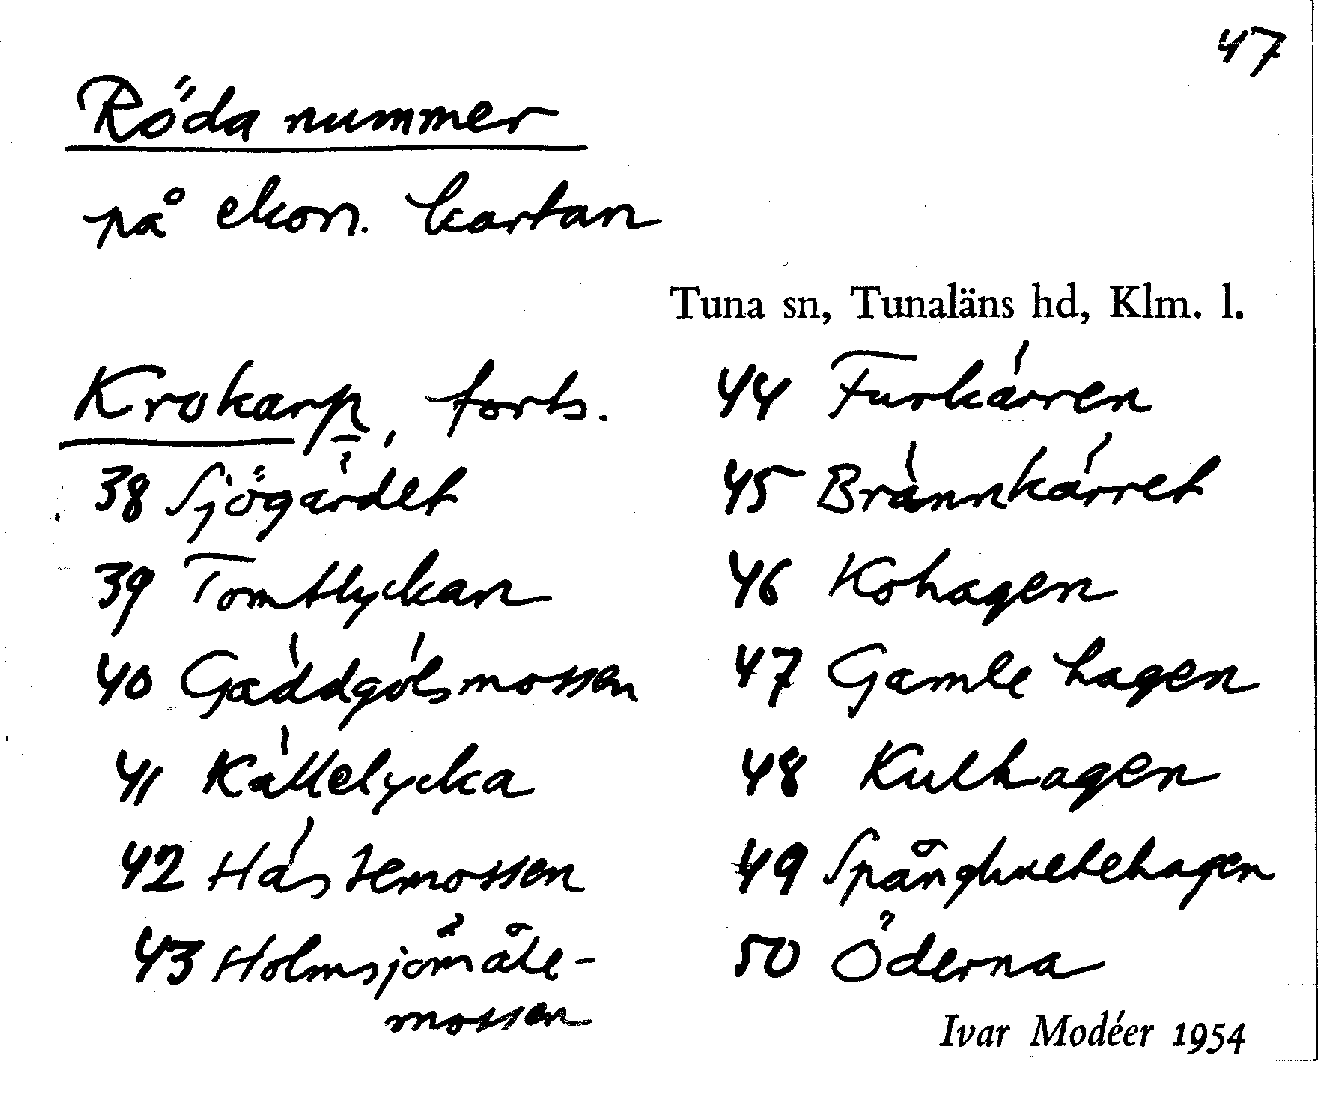 47
Röda nummer
på ekon. kartan
Tuna sn, Tunaläns hd, Klm. l.
Krokarp, forts.
38 Sjögärdet
39 Tomtlyckan
40 Gäddgölsmossen
41 Källelycka
42 Hästemossen
43 Holmsjömåle-
mossen
44 Furkärren
45 Brännkärret
46 Kohagen
47 Gamle hagen
48 Kulhagen
49 Spånghultehagen
50 Öderna
Ivar Modéer 1954